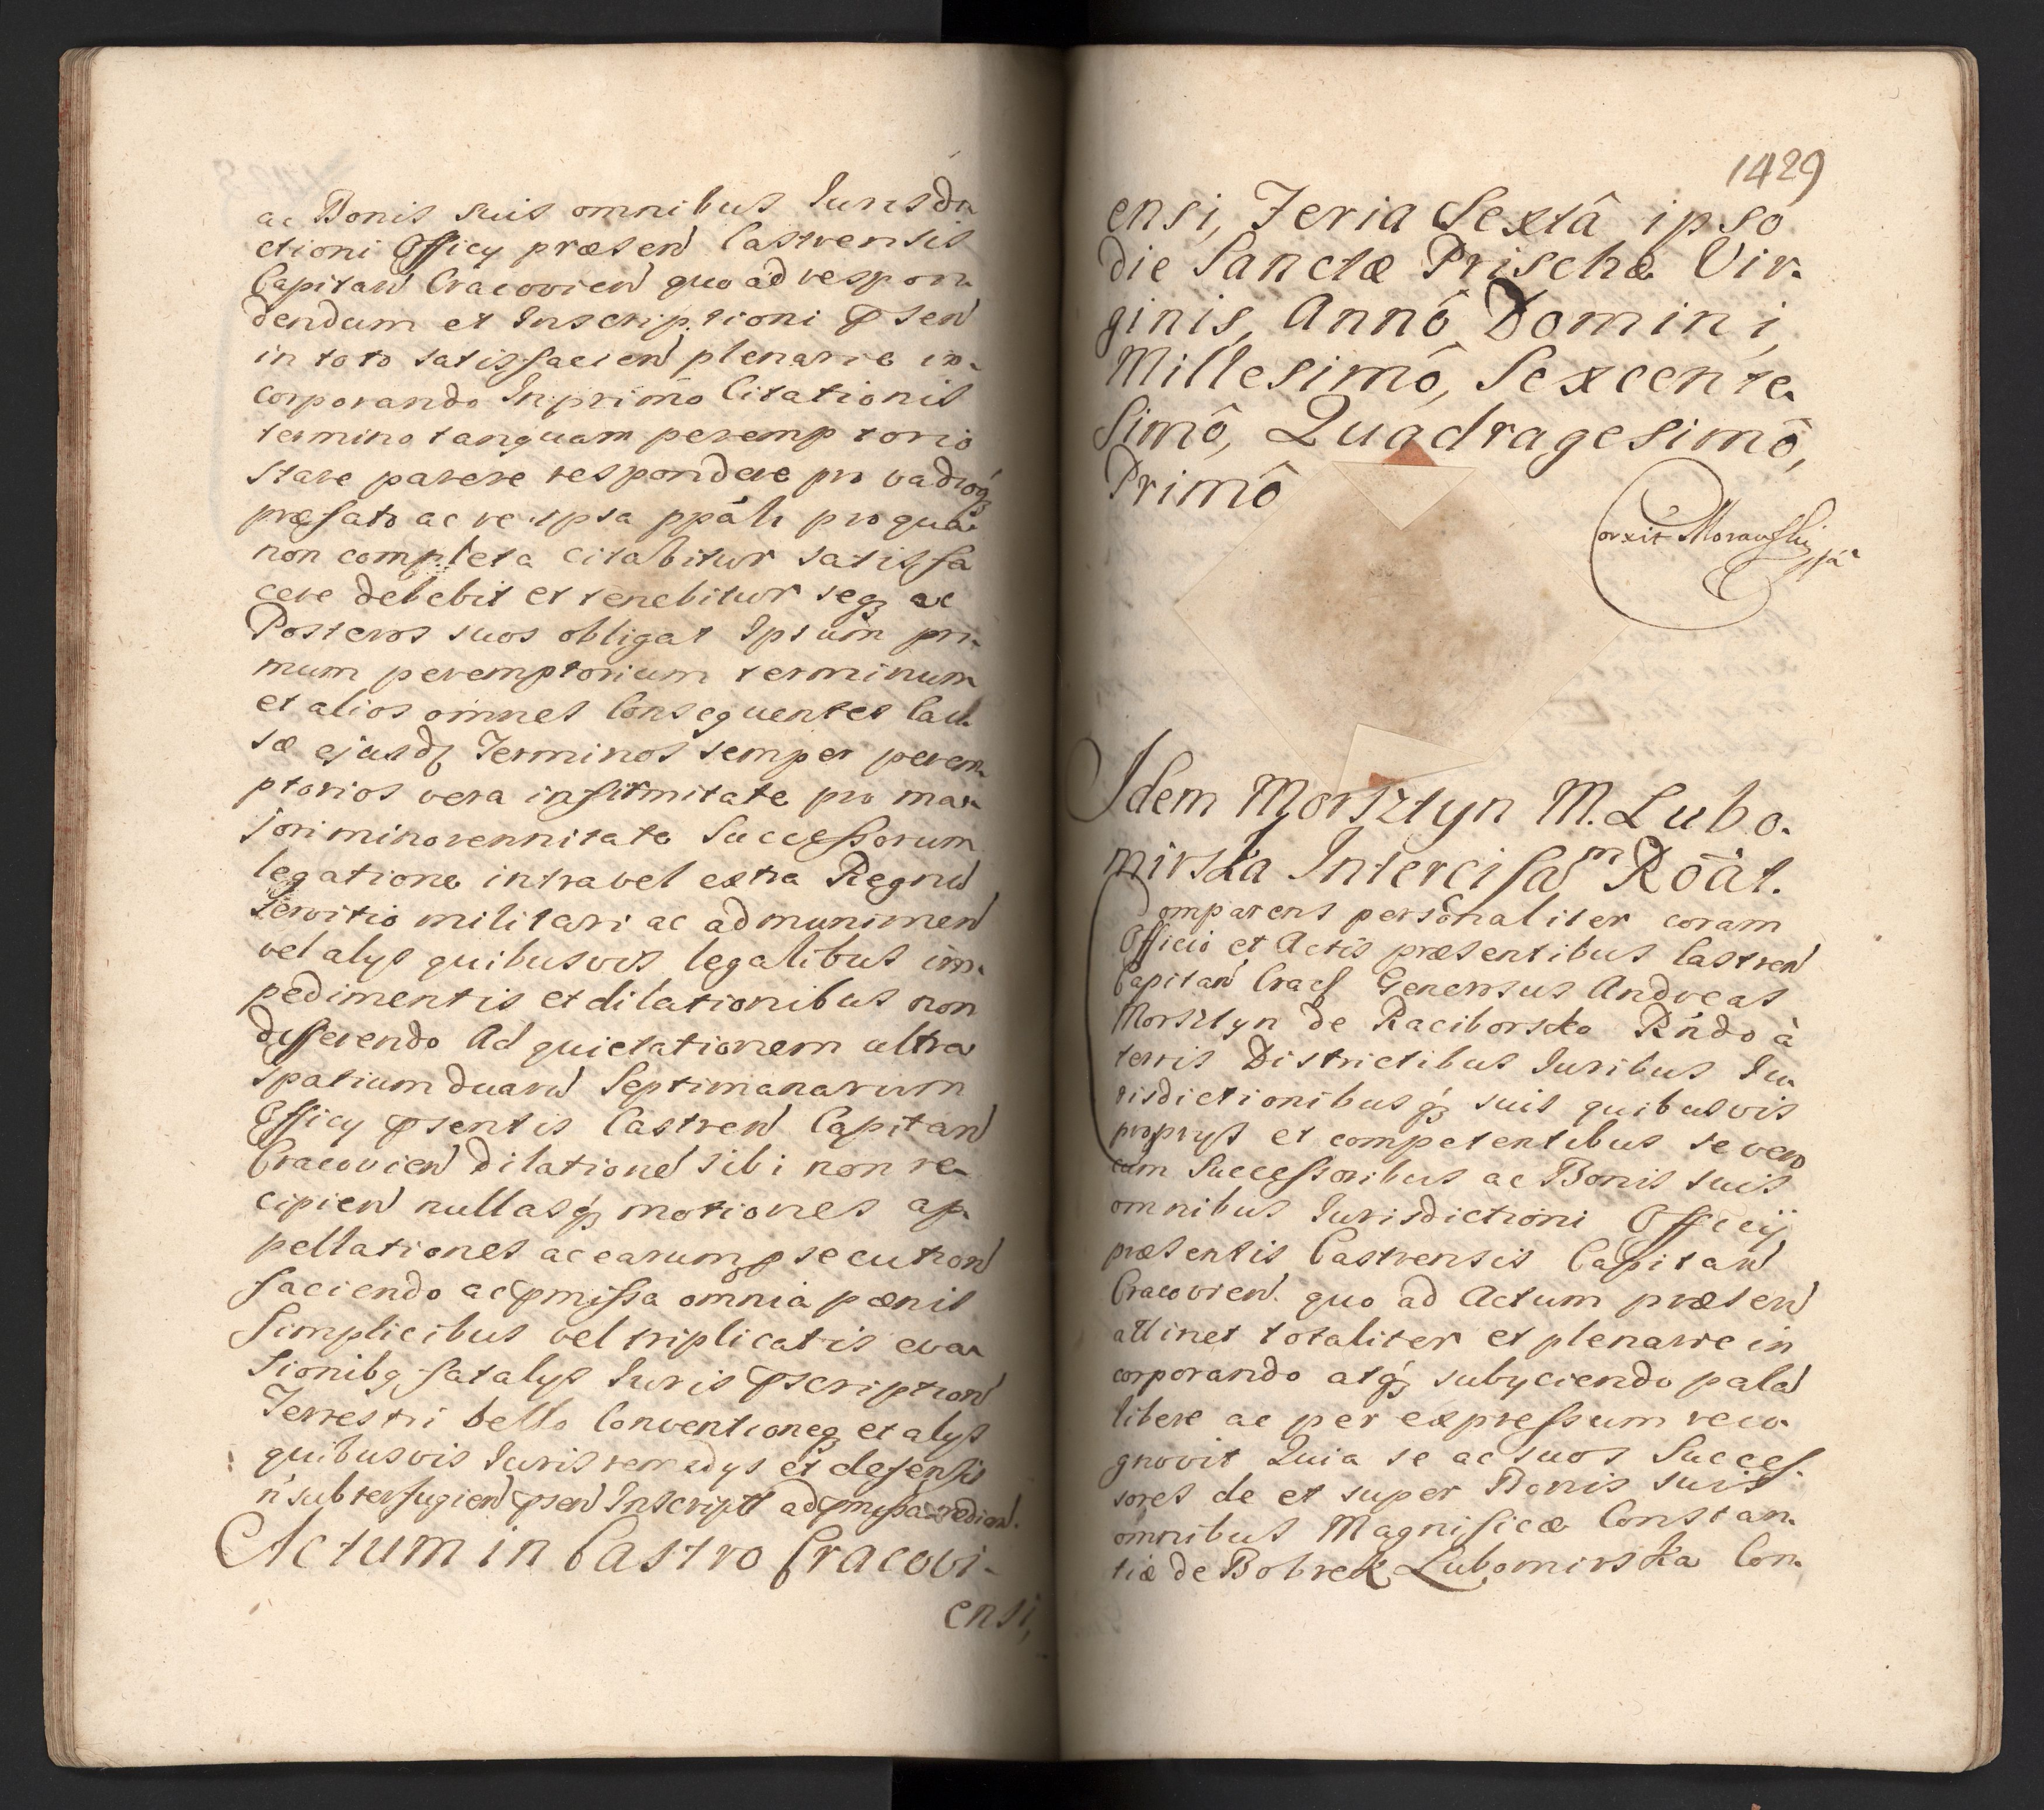 ac Bonis suis omnibus Iurisdi
ctioni Officy præsen Castrensis
Capitan Cracovien quo ad respon
dendum et Inscriptioni psen
in toto satisfacien plenarie in-
corporando In primo Citationis
termino tanquam peremptorio
stare parere respondere pro vadioq
præfato ac re ipsa ppali pro qua
non completa citabitur satisfa
cere debebit et tenebitur seq ac
Posteros suos obligat Ipsum pri-
mum peremptorium terminum
et alios omnes Consequentes Cau
sæ ejusd Terminos semper perem-
ptorios vera infirmitate pro ma-
jori minorennitate Successorum
legatione intra vel extra Regnu
servitio militari ac ad munimen
vel alys quibusvis legalibus im-
pedimentis et dilationibus non
differendo Ad quietationem ultra
spatium duaru Septimanarum
Officy psentis Castren Capitan
Cracovien dilatione sibi non re-
cipien nullasq motiones ap-
pellationes ac earum psecution
faciendo ac pmissa omnia pænis
simplicibus vel triplicatis eva-
sionibq fatalys Iuris pscription
Terrestri bello Conventioneq et alys
quibusvis Iuris remedys et defensis
n subterfugien psen Inscript ad pmissa redien.
Actum in Castro Cracovi-
ensi,
1429
ensi, Feria Sextâ ipso
die Sanctæ Prischæ Vir-
ginis, Annô Domini,
Millesimô, Sexcente-
simô, Quadragesimô,
Primô
Corxit Morawski
Idem Morsztyn M. Lubo-
mirska Intercisa^m Rõat.
Comparens personaliter coram
Officio et Actis præsentibus Castren
Capitan Crac Generosus Andreas
Morsztyn de Raciborsko Rndo à
terris Districtibus Iuribus Iu-
risdictionibusq suis quibusvis
proprys et competentibus se vero
cum Successoribus ac Bonis suis
omnibus Iurisdictioni Officij
præsentis Castrensis Capitan
Cracovien. quo ad Actum præsen
attinet totaliter et plenarie in
corporando atq subyciendo pala
libere ac per expressum reco-
gnovit Quia se ac suos Succes
sores de et super Bonis suis
omnibus Magnificæ Constan-
tiæ de Bobrek Lubomirska Con-